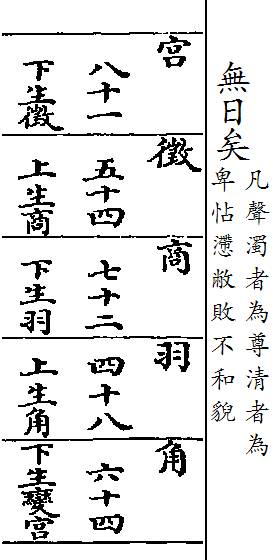 無日矣
凡聲濁者為尊清者為
卑怗懘敝敗不和貌
宮
八十一
下生徵
徵
五十四
上生商
商
七十二
下生羽
羽
四十八
上生角
角
六十四
下生變宮